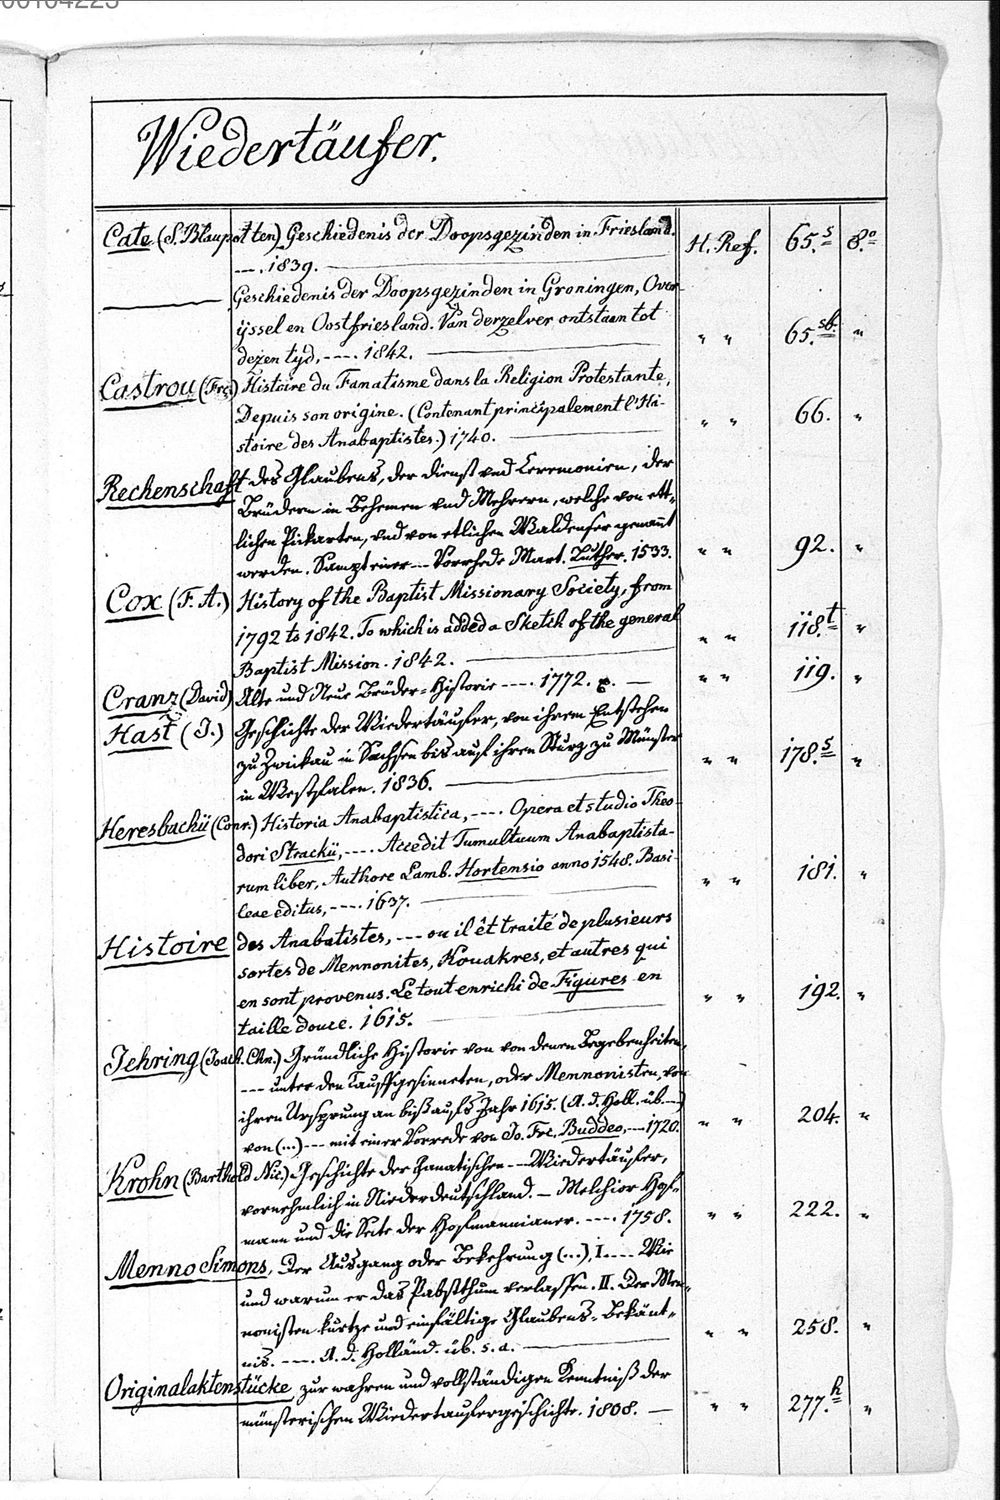 00104223
Wiedertäufer.
Cate (S. Blaupot ten) Geschiedenis der Doopsgezinden in Friesland.
---. 1839. H. Ref. 65.s 8.o
Geschiedenis der Doopsgezinden in Groningen, Over-
ijssel en Oostfriesland. Van derzelver ontstaan tot
dezen tyd, ---. 1842. " " 65.sb. "
Castrou (Frç.) Histoire du Fanatisme dans la Religion Protestante,
Depuis son origine. (Contenant principalement l'Hi-
stoire des Anabaptistes.) 1740. " " 66. "
Rechenschaft des Glaubens, der dienst vnd Ceremonien, der
Brüdern in Behemen vnd Mehrern, welche von ett-
lichen Pickarten, vnd von etlichen Waldenser genant
werden. Sampt einer --- Vorrhede Mart. Luther. 1533. " " 92. "
Cox (F. A.) History of the Baptist Missionary Society, from
1792 to 1842. To which is added a Sketch of the general
Baptist Mission. 1842. " " 118.t "
Cranz (David) Alte und Neue Brüder-Historie ---. 1772. " " 119. "
Hast (J.) Geschichte der Wiedertäufer, von ihrem Entstehen
zu Zwickau in Sachsen bis auf ihren Sturz zu Münster
in Westfalen. 1836. " " 178.s "
Heresbachii (Conr.) Historia Anabaptistica, ---. Opera et studio Theo-
dori Strackii, ---. Accedit Tumultuum Anabaptista-
rum liber, Authore Lamb. Hortensio anno 1548. Basi-
leae editus, ---. 1637. " " 181. "
Histoire des Anabatistes, --- ou il êt traité de plusieurs
sortes de Mennonites, Kouakres, et autres qui
en sont provenus. Le tout enrichi de Figures en
taille douce. 1615. " " 192. "
Jehring (Joach. Chn.) Gründliche Historie von von denen Begebenheiten,
--- unter den Tauffgesinneten, oder Mennonisten, von
ihren Ursprung an biß aufs Jahr 1615. (A. d. Holl. üb. ---)
von (...) --- mit einer Vorrede von Jo. Frc. Buddeo, --- 1720. " " 204. "
Krohn (Barthold Nic.) Geschichte der Fanatischen --- Wiedertäufer,
vornehmlich in Niederdeutschland. - Melchior Hof-
mann und die Secte der Hofmannianer. ---. 1758. " " 222. "
Menno Simons, Der Ausgang oder Bekehrung (...), I. --- Wie
und warum er das Pabstthum verlassen. II. Der Men-
nonisten kurtze und einfältige Glaubens-Bekänt-
nis. ---. A. d. Holländ. üb. s. a. " " 258. "
Originalaktenstücke, zur wahren und vollständigen Kenntniß der
münsterischen Wiedertaufergeschichte. 1808. " " 277.h "